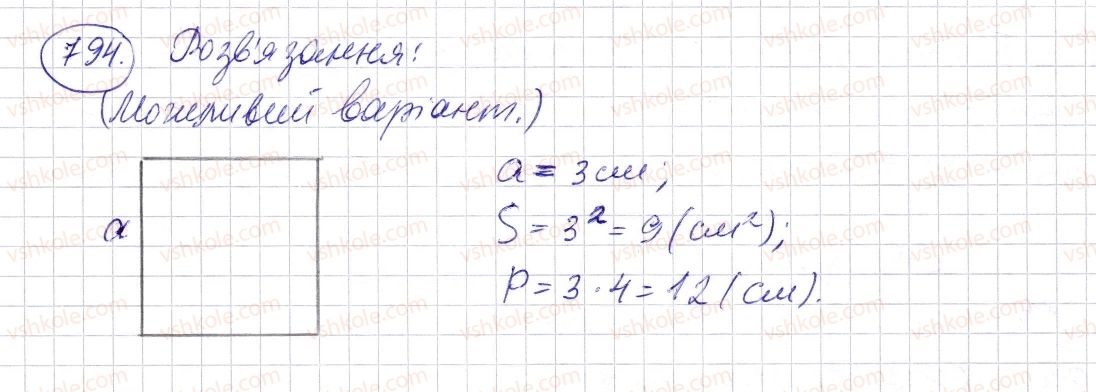 794. Розв'язання:
(Можливий варіант.)
a
a = 3 см;
S = 3² = 9 (см²);
P = 3 · 4 = 12 (см).
vshkole.com